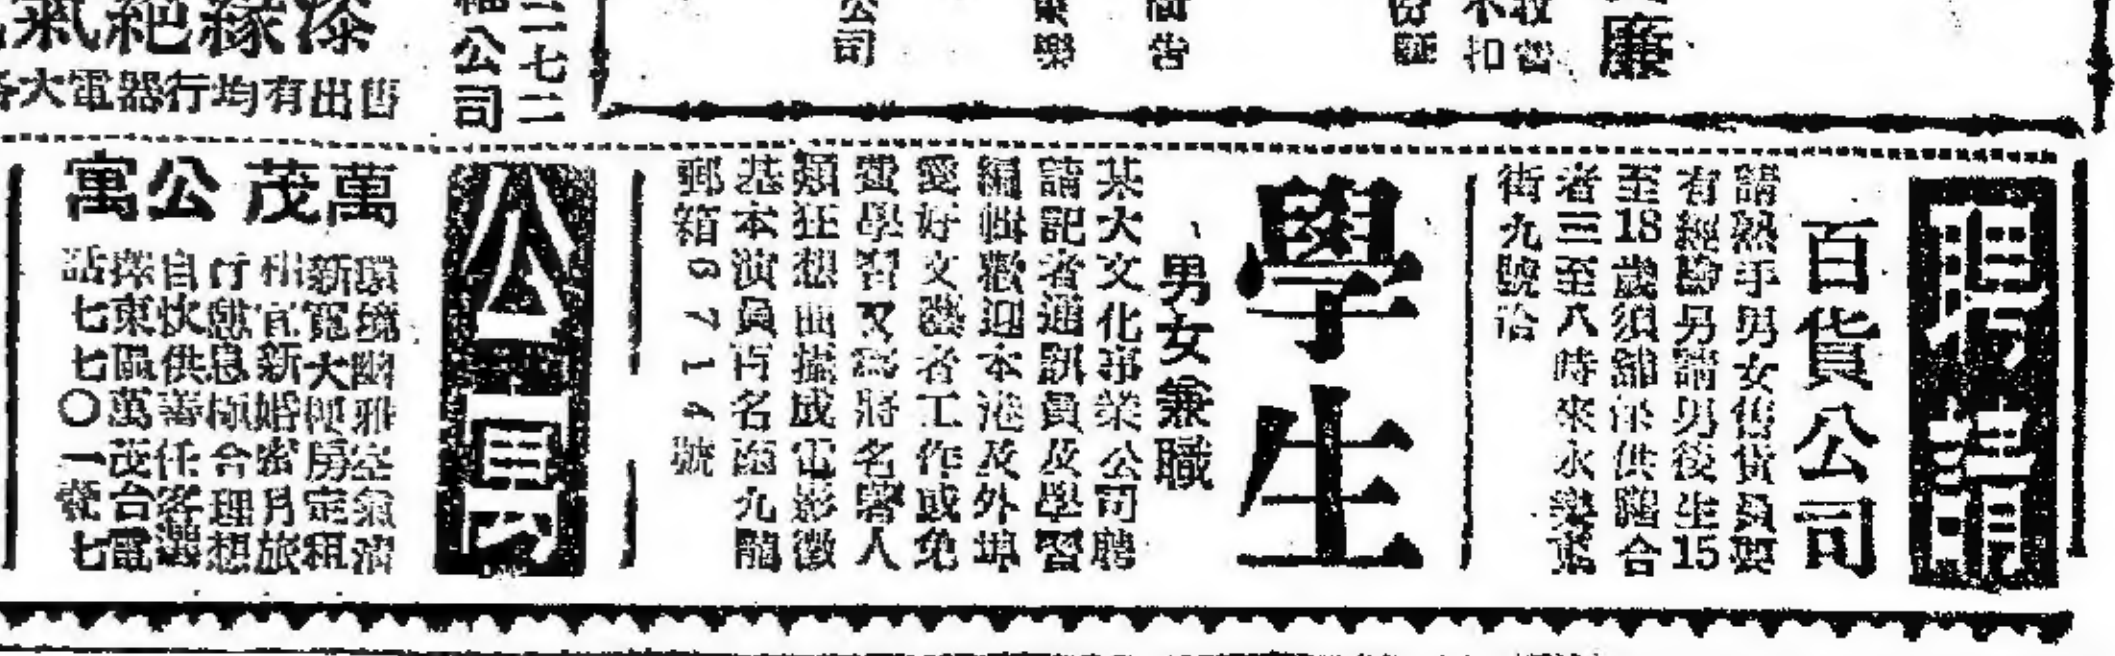 氣絕緣漆
大電器行均有出售
公司
二七二
公司
現請
百貨公司
請熟手男女售貨員要
有經驗另請男後生15
至18歲須舖保供膳合
者三至八時來永樂東
街九號洽
學生
、男女兼職
某大文化事業公司聘
請記者通訊員及學習
編輯歡迎本港及外埠
愛好文藝者工作或免
費學習又為將名著人
類狂想曲攝成電影徵
基本演員有名額九龍
郵箱67714號
公寓
萬茂公寓
環境幽雅空氣清
新寬大梗房定租
相宜新婚蜜月旅
行憩息極合理想
自炊供膳任客選
擇東區萬茂台電
話七七〇一號七